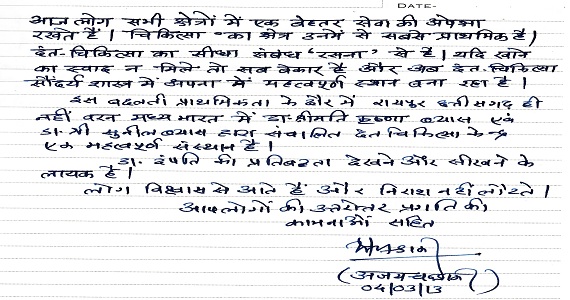 DATE-
आज लोग सभी क्षेत्रों में एक बेहतर सेवा की अपेक्षा
रखते हैं। चिकित्सा का क्षेत्र उनमें से सबसे प्राथमिक है।
दंत-चिकित्सा का सीधा संबंध 'रसना' से है। यदि खाने
का स्वाद न मिले तो सब बेकार है और अब दंत-चिकित्सा
सौंदर्य शास्त्र में अपना में महत्वपूर्ण स्थान बना रहा है।
इस बदलती प्राथमिकता के दौर में रायपुर छत्तीसगढ़ ही
नहीं वरन मध्य भारत में डा. श्रीमति कृष्णा व्यास एवं
डा. श्री सुनील व्यास द्वारा संचालित दंत चिकित्सा केन्द्र
एक महत्वपूर्ण संस्थान है।
डा. दंपति की प्रतिबद्धता देखने और सीखने के
लायक है।
लोग विश्वास से आते हैं और निराश नहीं लौटते।
आपलोगों की उत्तरोत्तर प्रगति की
कामनाओं सहित
04/03/13